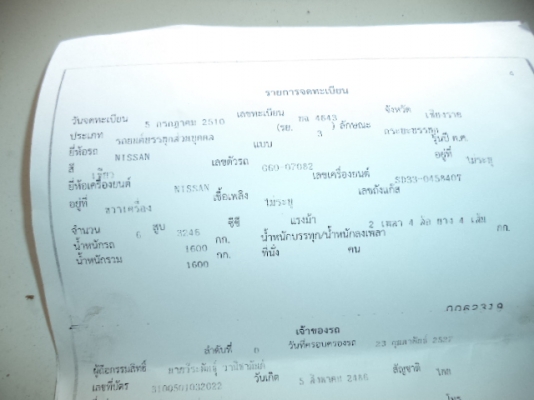 รายการจดทะเบียน
วันจดทะเบียน 5 กรกฎาคม 2510 เลขทะเบียน 4643 จังหวัด เชียงราย
ประเภท รถยนต์บรรทุกส่วนบุคคล (รย. 3 ) ลักษณะ กระบะบรรทุก
ยี่ห้อรถ NISSAN แบบ รุ่นปี ค.ศ.
สี เขียว เลขตัวรถ G60-07082 อยู่ที่ ไม่ระบุ
ยี่ห้อเครื่องยนต์ NISSAN เลขเครื่องยนต์ SD33-045840T
อยู่ที่ ขวาเครื่อง เชื้อเพลิง ไม่ระบุ เลขถังแก๊ส
จำนวน 6 สูบ 3246 ซีซี แรงม้า 2 เพลา 4 ล้อ ยาง 4 เส้น
น้ำหนักรถ 1600 กก. น้ำหนักบรรทุก/น้ำหนักลงเพลา กก.
น้ำหนักรวม 1600 กก. ที่นั่ง คน
เจ้าของรถ
ลำดับที่ วันที่ครอบครองรถ 23 กุมภาพันธ์
ผู้ถือกรรมสิทธิ์
เลขที่บัตร 3100501032022 วันเกิด 5 สิงหาคม 2486 สัญชาติ ไทย